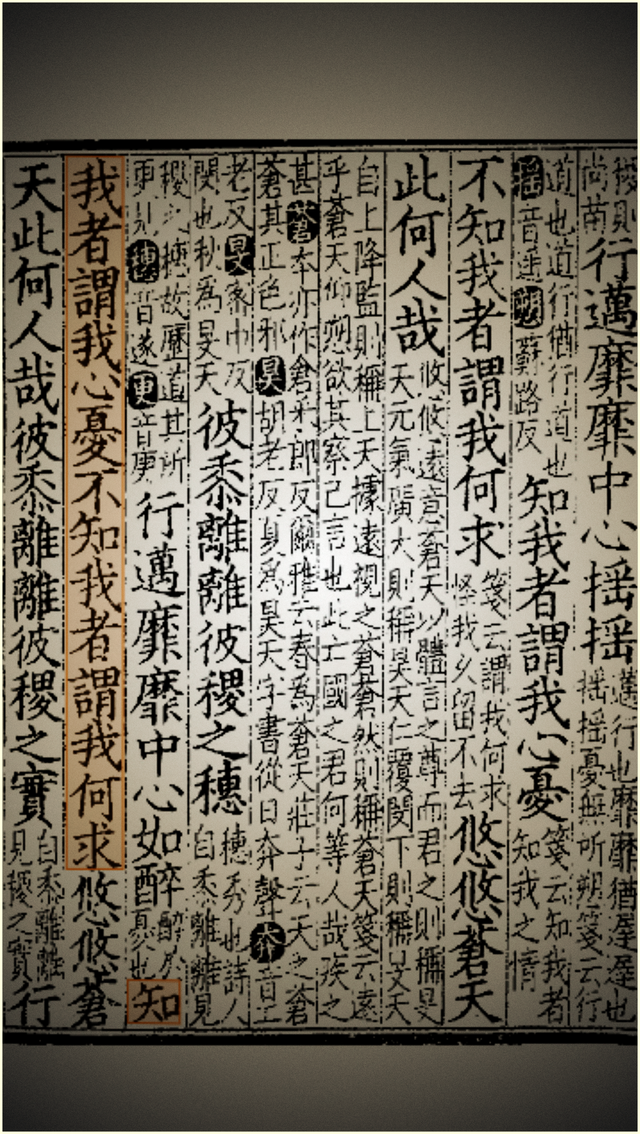 稷則
尚苗
行邁靡靡中心揺揺
邁行也靡靡猶遲遲也
揺揺憂無所朔箋云行
道也道行猶行道也
揺音遥朔蘇路反
知我者謂我心憂
箋云知我者
知我之情
不知我者謂我何求
箋云謂我何求
怪我久留不去
悠悠蒼天
此何人哉
悠悠遠意蒼天以體言之尊而君之則稱皇
天元氣廣大則稱昊天仁覆閔下則稱旻天
自上降監則稱上天據遠視之蒼蒼然則稱蒼天箋云遠
乎蒼天仰愬欲其察己言也此亡國之君何等人哉疾之
甚蒼本亦作倉采郎反爾雅云春為蒼天莊子云天之蒼
蒼其正色邪昊胡老反夏為昊天字書從日夲聲夲音工
老反旻密巾反
閔也秋為旻天
彼黍離離彼稷之穗
穗秀也詩人
自黍離離見
稷之穗故歷道其所
更見穗音遂更音庚
行邁靡靡中心如醉
醉於
憂也
知
我者謂我心憂不知我者謂我何求悠悠蒼
天此何人哉彼黍離離彼稷之實
自黍離離
見稷之實
行